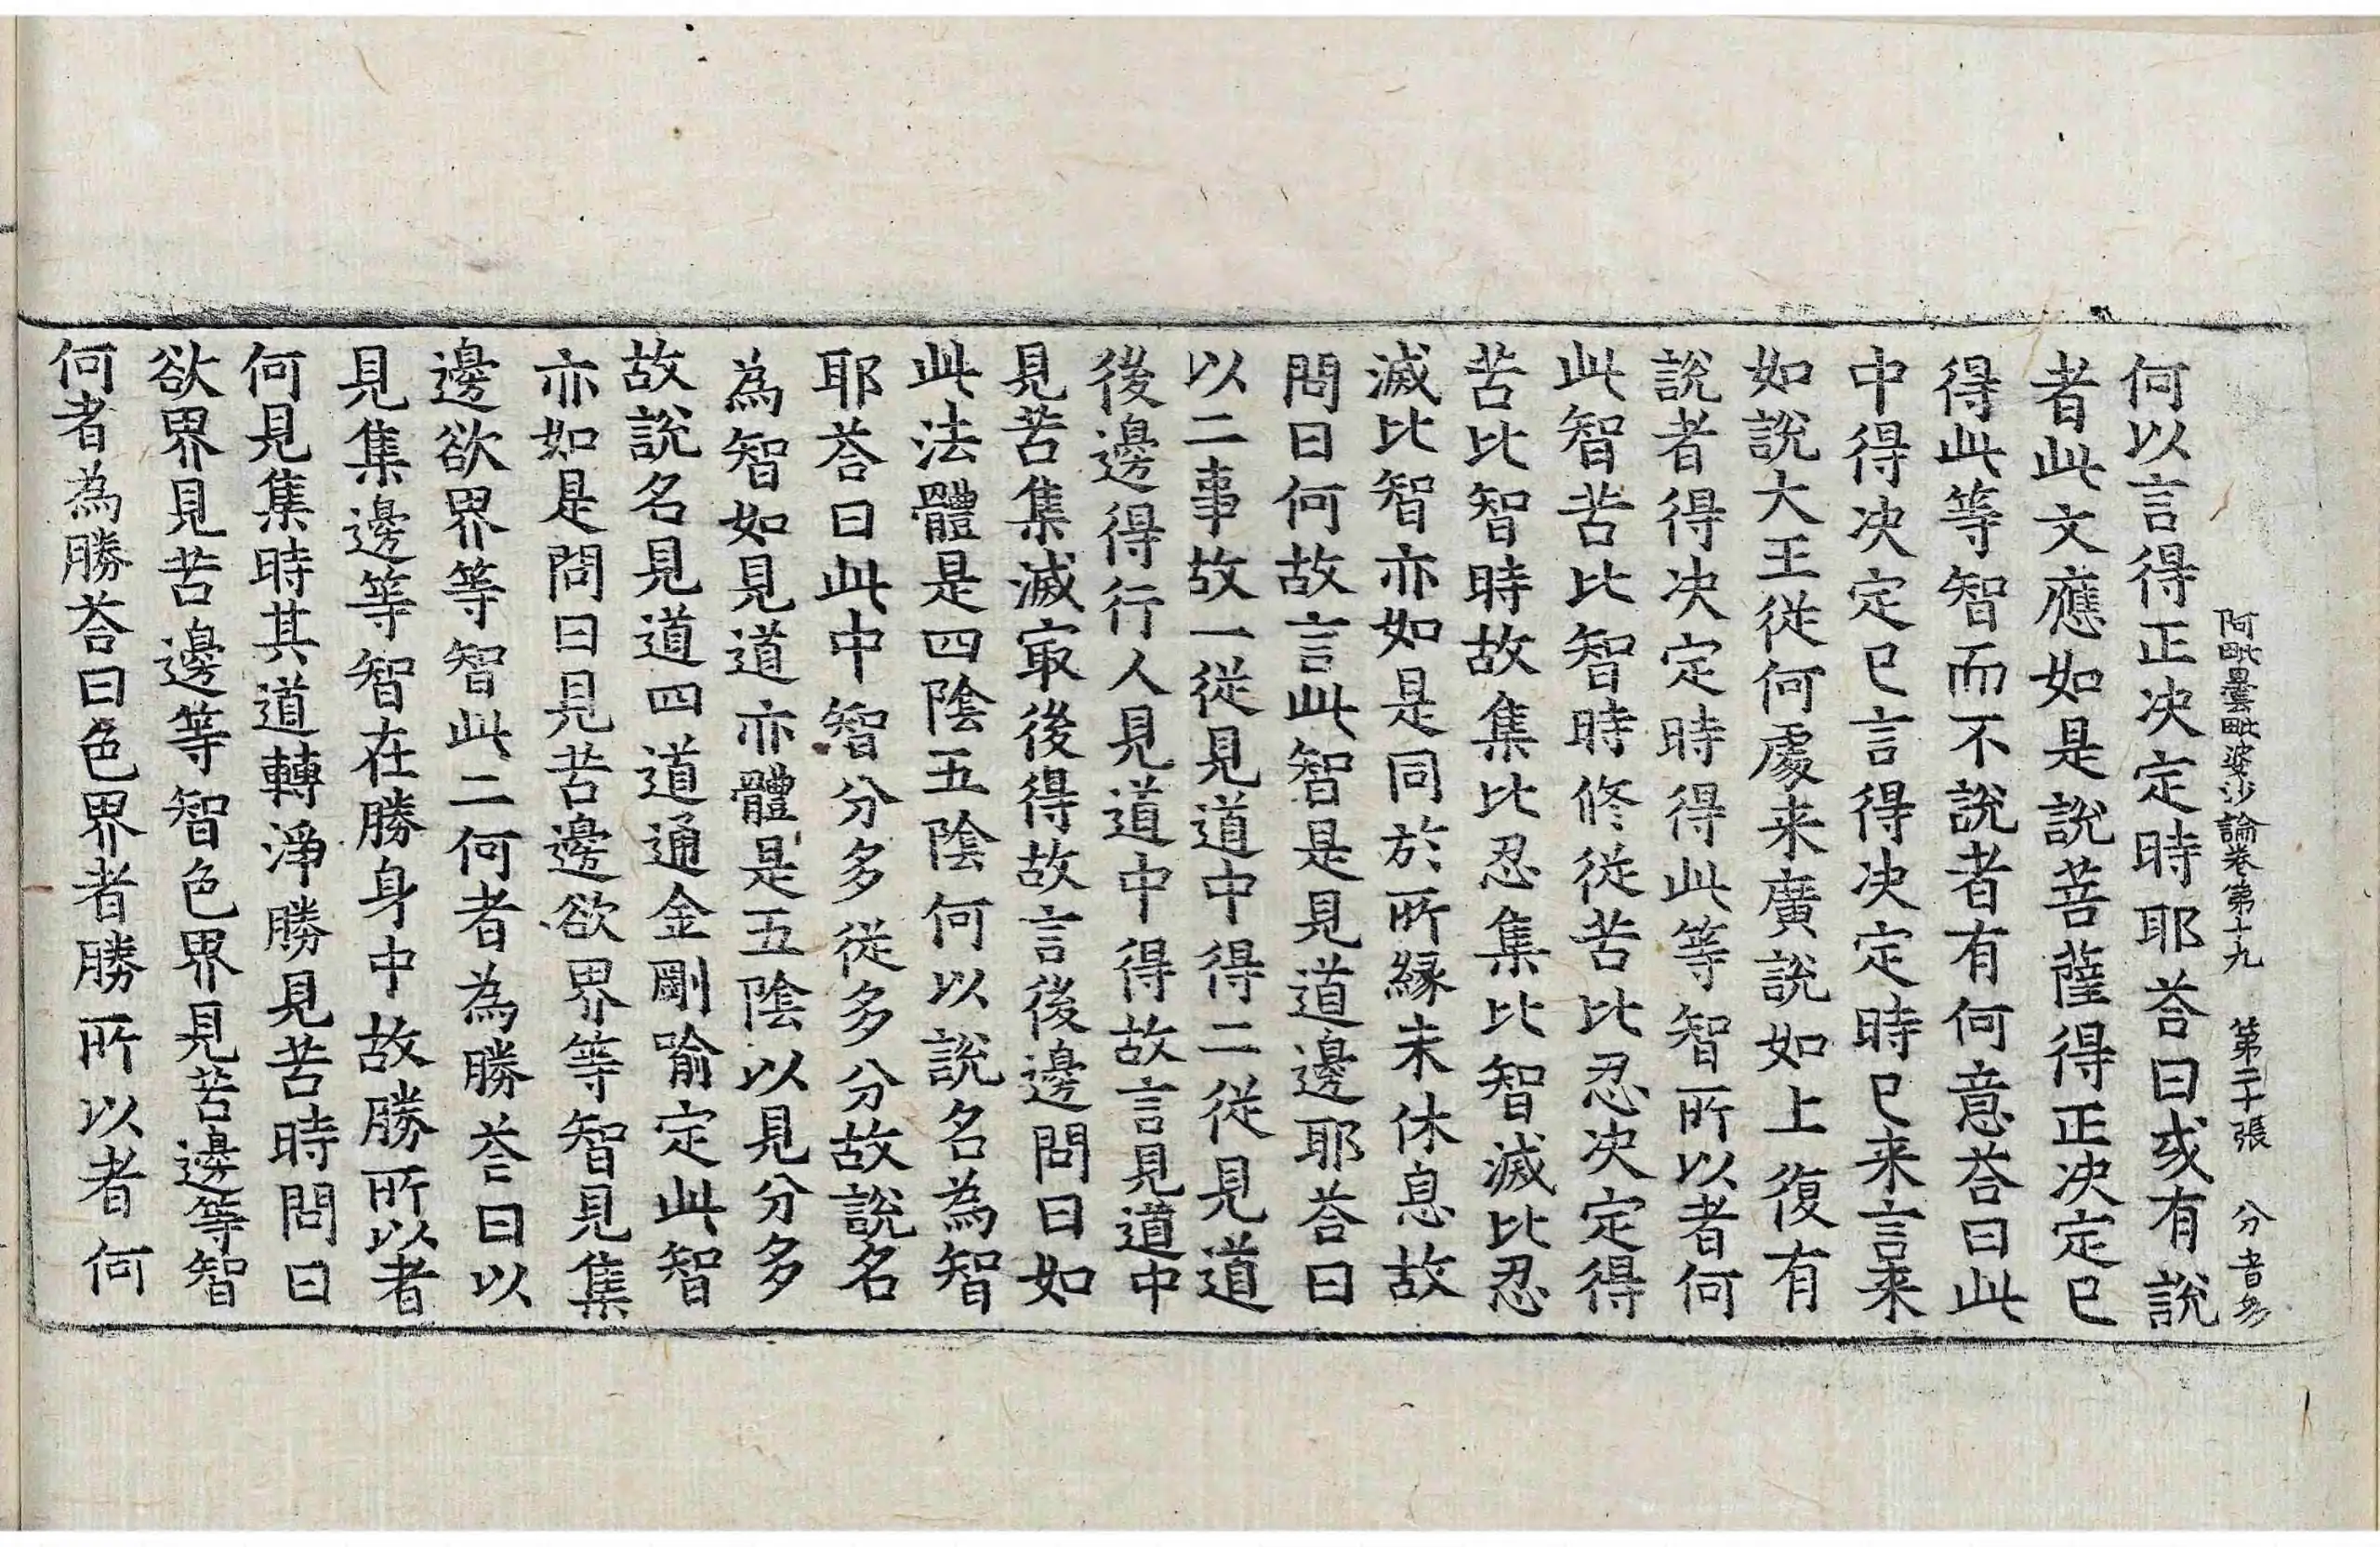 阿毗曇毗婆沙論卷第十九 第二十張 分 音多
何以言得正决定時耶荅曰或有說
者此文應如是說菩薩得正决定已
得此等智而不說者有何意荅曰此
中得决定已言得决定時已来言来
如說大王從何處来廣說如上復有
說者得决定時得此等智所以者何
此智苦比智時修從苦比忍决定得
苦比智時故集比忍集比智滅比忍
滅比智亦如是同於所緣未休息故
問曰何故言此智是見道邊耶荅曰
以二事故一從見道中得二從見道
後邊得行人見道中得故言見道中
見苦集滅冣後得故言後邊問曰如
此法體是四陰五陰何以說名為智
耶荅曰此中智分多從多分故說名
為智如見道亦體是五陰以見分多
故說名見道四道通金剛喻定此智
亦如是問曰見苦邊欲界等智見集
邊欲界等智此二何者為勝荅曰以
見集邊等智在勝身中故勝所以者
何見集時其道轉淨勝見苦時問曰
欲界見苦邊等智色界見苦邊等智
何者為勝荅曰色界者勝所以者何